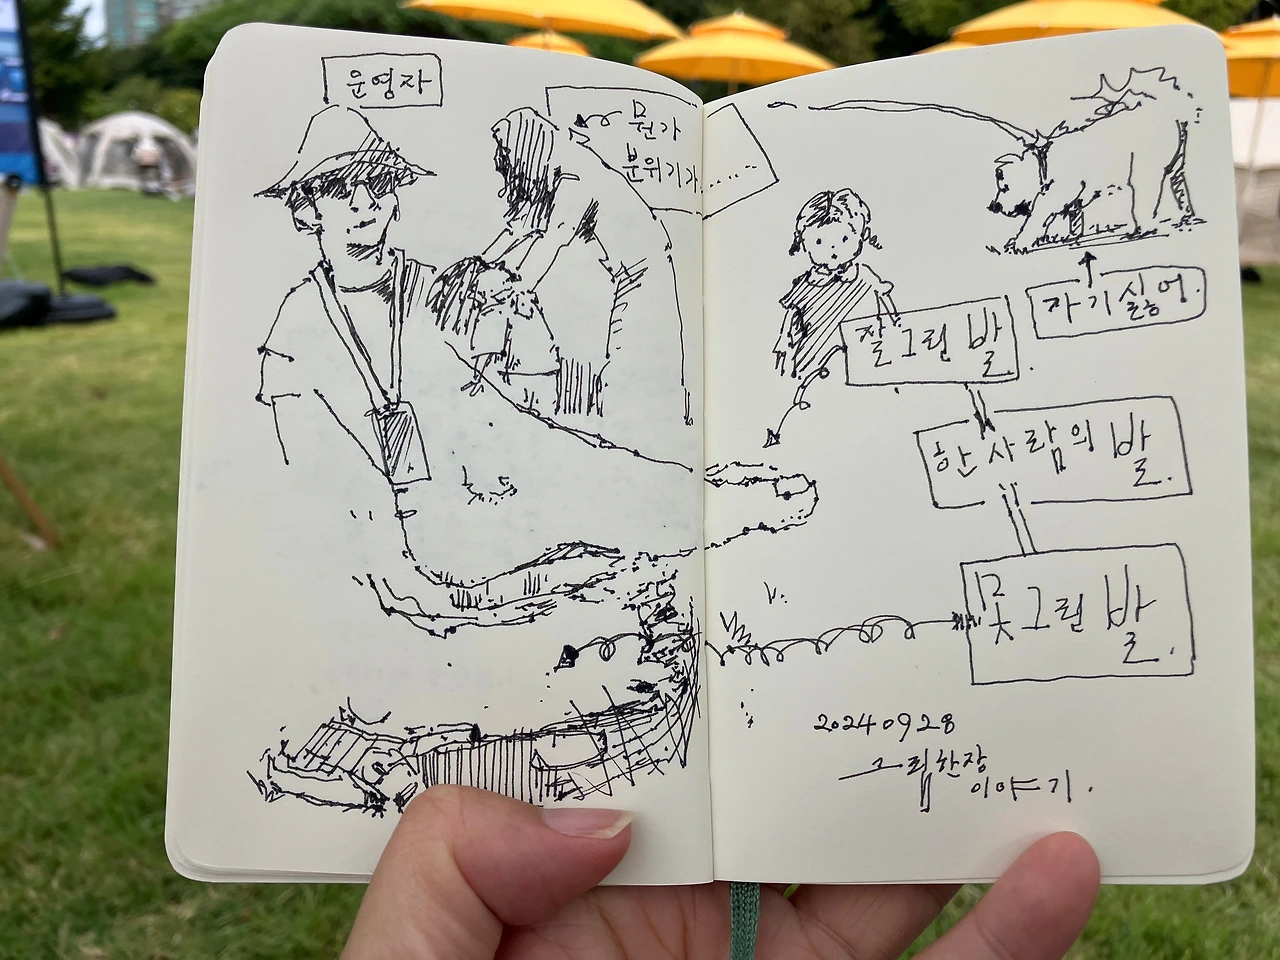 운영자
뭔가
분위기가.......
자기싫어.
잘그린 발.
한 사람의 발.
못그린 발.
20240928
그림한장
이야기.